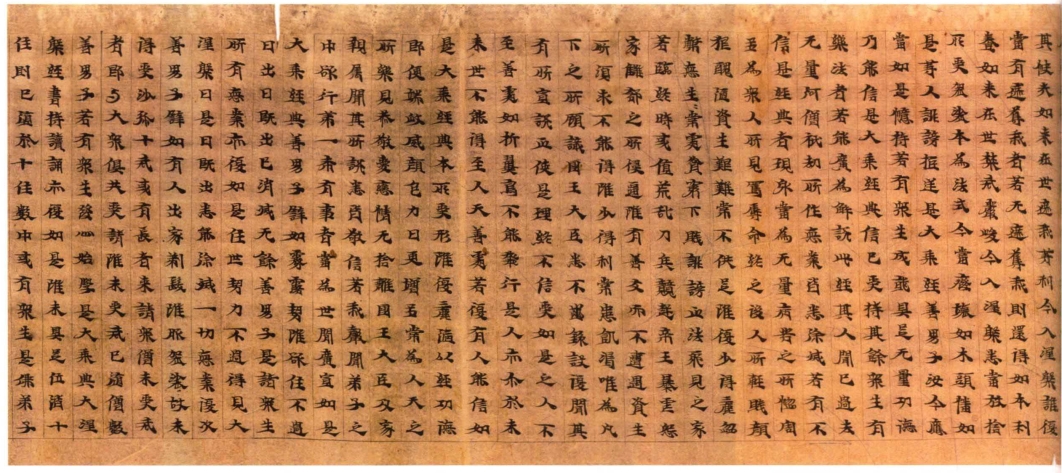 其伎夫如是應念若利令入涅槃諸優
當有應奪我者若无應奪我則還得如本利
養如來在世禁戒嚴峻今入涅槃悉當放捨
所受袈裟本為法式今當廢壞如木頭幡如
是等人誹謗拒逆是大乘經善男子汝今應
當如是憶持若有眾生成就具足无量功德
乃能信是大乘經典信已受持其餘眾生有
樂法者若能廣為解說此經其人聞已過去
无量阿僧祇劫所作惡業皆悉除滅若有不
信是經典者現身當為无量病苦之所惱周
五為眾人所見罵辱命終之後人所輕賤顏
狠醜陋資生艱難常不供足雖復少得麤忽
弊惡生常處貧窮下賤誹謗正法邪見之家
若臨終時或值荒亂刀兵競起帝王暴虐怨
家讎郄之所侵逼雖有善友而不遭遇資生
所須求不能得雖少得利常患飢渴唯為凡
下之所顧識國王大臣悉不齒錄設復聞其
有所宣說正使是理終不信受如是之人不
至善處如折翼鳥不能飛行是人亦尒於未
來世不能得至人天善處若復有人能信如
是大乘經典本所受形雖復麤陋以經功德
即便端政威顏色力日更增多常為人天之
所樂見恭敬愛戀情无捨離國王大臣及家
親屬聞其所說悉皆敬信若我聲聞弟子之
中欲行第一希有事者當為世間廣宣如是
大乘經典善男子譬如霧露勢雖欲住不過
日出日既出已消滅无餘善男子是諸眾生
所有惡業亦復如是住世勢力不過得見大
涅槃日是日既出悉能除滅一切惡業復次
善男子譬如有人出家剃髮雖服袈裟故未
得受沙彌十戒或有長者來請眾僧未受戒
者即与大眾俱共受請雖未受戒已墮僧數
善男子若有眾生發心始學是大乘典大涅
槃經書持讀誦亦復如是雖未具足位階十
住則已墮於十住數中或有眾生是佛弟子